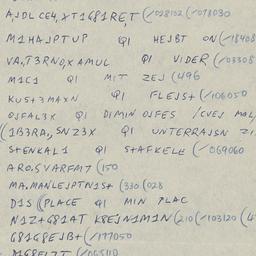 AJDLCE4,XT1G81RE,T (/028102 (/078030
M1HAJPTUP QI HEJBT ON (/18408
VA,T3RNO,XAMUL QI VIDER (/03308
M1C1 QI MIT ZEJ (496
KUS+3MAXN QI FLEJS+ (/106050
OSFAL3X QI DIMIN OSFES /CVES MAL,
(1B3RA,,SNZ3X QI UNTERRASSN ZI
S+ENKAL1 QI S+AFKELE (/069060
ARO,SVARFMT (150
MA,MANLEJPTN1S+ (330 (028
D1S (PLACE QI MIN PLAC
N1Z+G81AT K8EJN1M1N (210 (/103120 (4
G81G8EJB+ (/177050